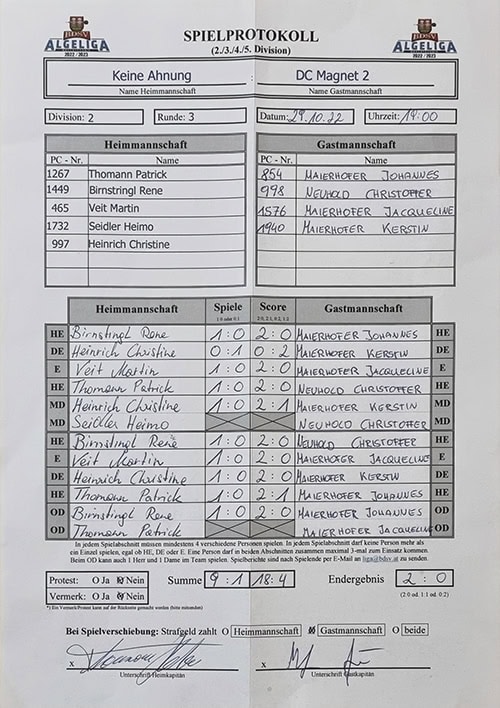 BDSV
ALGELIGA
2022/2023
SPIELPROTOKOLL
(2./3./4./5. Division)
BDSV
ALGELIGA
2022/2023
Keine Ahnung : DC Magnet 2
Name Heimmannschaft Name Gastmannschaft
Division: 2 Runde: 3 Datum: 29.10.22 Uhrzeit: 14:00
Heimmannschaft Gastmannschaft
PC - Nr. Name PC - Nr. Name
1267 Thomann Patrick 854 MAIERHOFER JOHANNES
1449 Birnstringl Rene 998 NEUHOLD CHRISTOFFER
465 Veit Martin 1576 MAIERHOFER JACQUELINE
1732 Seidler Heimo 1940 MAIERHOFER KERSTIN
997 Heinrich Christine
Heimmannschaft Spiele Score Gastmannschaft
1:0 oder 0:1 2:0, 2:1, 0:2, 1:2
HE Birnstingl Rene 1:0 2:0 MAIERHOFER JOHANNES HE
DE Heinrich Christine 0:1 0:2 MAIERHOFER KERSTIN DE
E Veit Martin 1:0 2:0 MAIERHOFER JACQUELINE E
HE Thomann Patrick 1:0 2:0 NEUHOLD CHRISTOFFER HE
MD Heinrich Christine 1:0 2:1 MAIERHOFER KERSTIN MD
MD Seidler Heimo NEUHOLD CHRISTOFFER MD
HE Birnstingl Rene 1:0 2:0 NEUHOLD CHRISTOFFER HE
E Veit Martin 1:0 2:0 MAIERHOFER JACQUELINE E
DE Heinrich Christine 1:0 2:0 MAIERHOFER KERSTIN DE
HE Thomann Patrick 1:0 2:1 MAIERHOFER JOHANNES HE
OD Birnstingl Rene 1:0 2:0 MAIERHOFER JOHANNES OD
OD Thomann Patrick MAIERHOFER JACQUELINE OD
In jedem Spielabschnitt müssen mindestens 4 verschiedene Personen spielen. In jedem Spielabschnitt darf keine Person mehr als
ein Einzel spielen, egal ob HE, DE oder E. Eine Person darf in beiden Abschnitten zusammen maximal 3-mal zum Einsatz kommen.
Beim OD kann auch 1 Herr und 1 Dame im Team spielen. Spielberichte sind nach Spielende per E-Mail an liga@bdsv.at zu senden.
Protest: O Ja O Nein Summe 9:1 18:4 Endergebnis 2:0
Vermerk: O Ja O Nein (2:0 od. 1:1 od. 0:2)
*) Ein Vermerk/Protest kann auf der Rückseite gemacht werden (bitte ankreuzen)
Bei Spielverschiebung: Strafgeld zahlt O Heimmannschaft O Gastmannschaft O beide
x x
Unterschrift Heimkapitän Unterschrift Gastkapitän